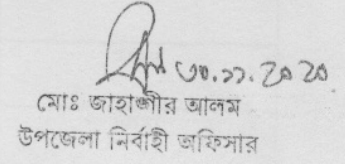 ৩০.১১.২০২০
মোঃ জাহাঙ্গীর আলম
উপজেলা নির্বাহী অফিসার